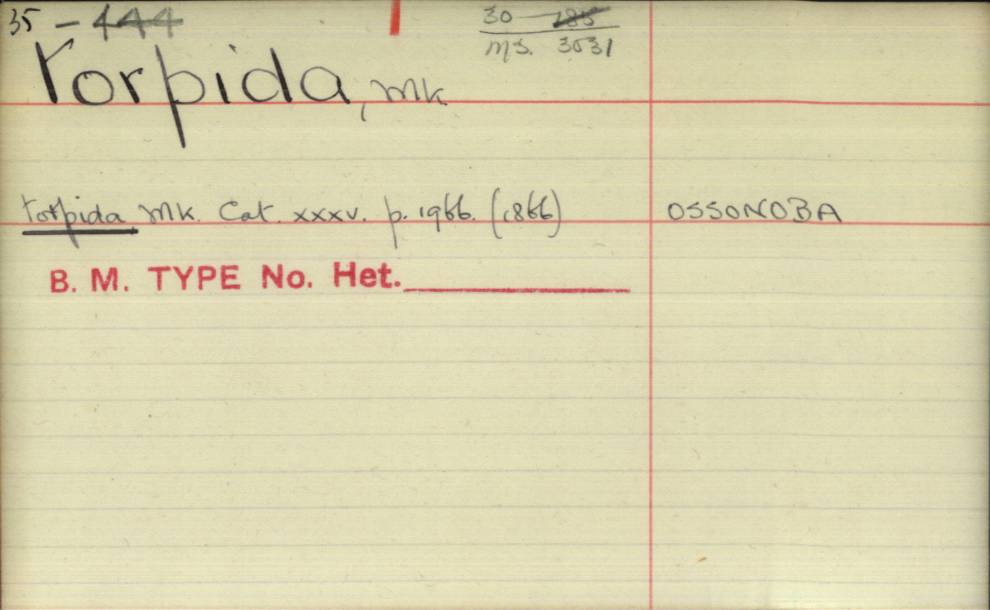 35 - 444
30 285
MS. 3031
torpida, Mk
torpida Mk. Cat. xxxv. p. 1966. (1866) OSSONOBA
B. M. TYPE No. Het.